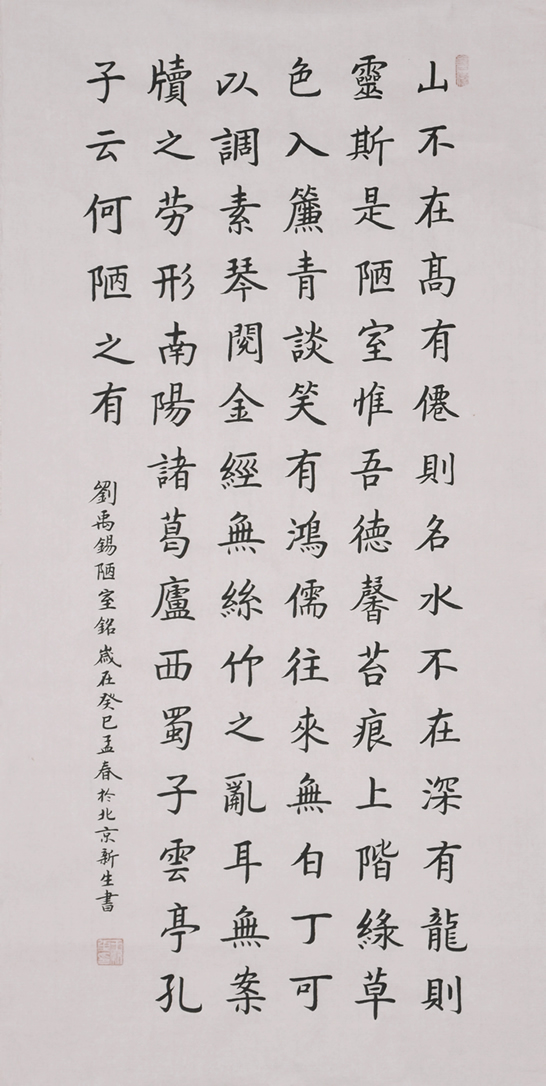 山不在髙有僊則名水不在深有龍則
靈斯是陋室惟吾德馨苔痕上階緑草
色入簾青談笑有鴻儒往來無白丁可
以調素琴閱金經無絲竹之亂耳無案
牘之劳形南陽諸葛廬西蜀子雲亭孔
子云何陋之有
劉禹錫陋室銘歲在癸巳孟春於北京新生書